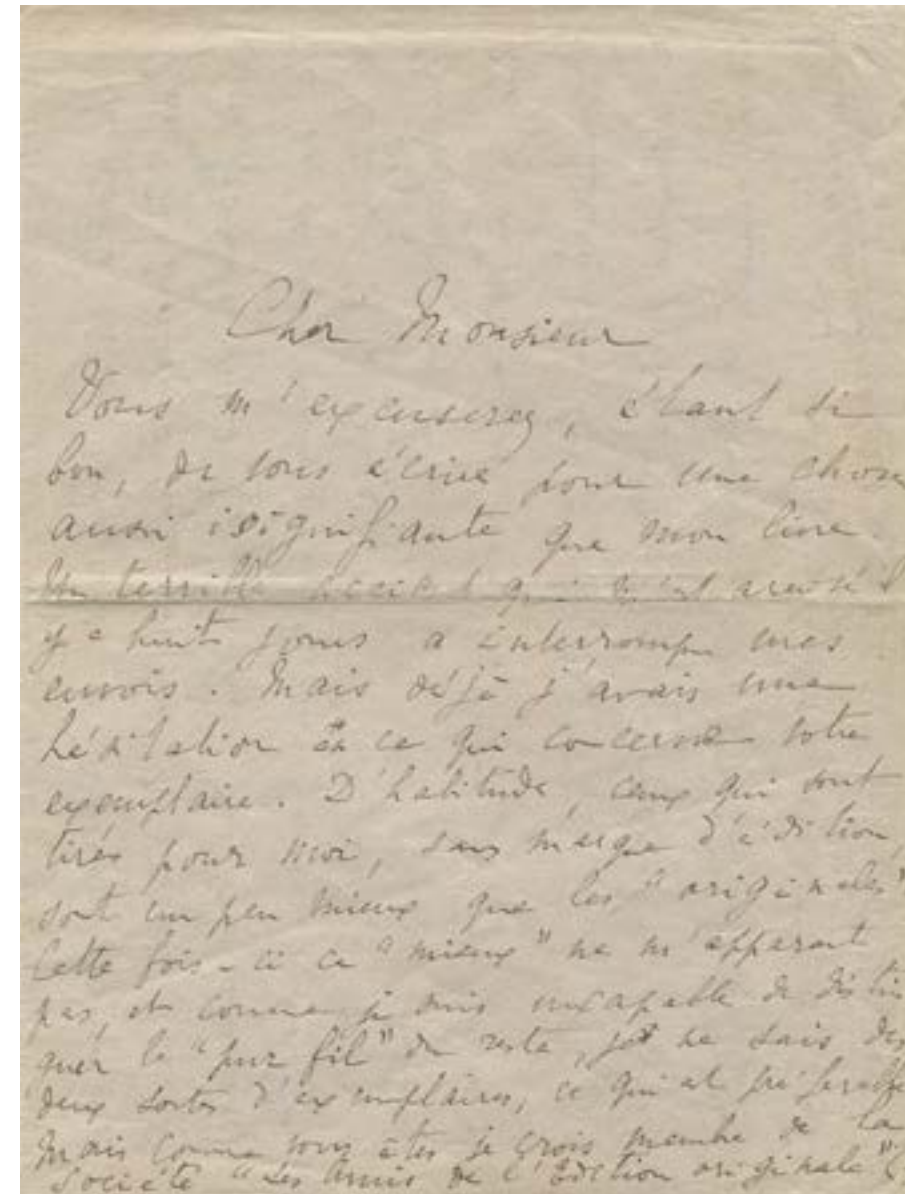 Cher Monsieur
Vous m'excuserez, étant si
bon, de vous écrire pour une chose
aussi isignifiante que mon livre.
Un terrible accident qui m'est arrivé il
y a huit jours a interrompu mes
envois. Mais déjà j'avais une
hésitation en ce qui concerne votre
exemplaire. D'habitude, ceux qui sont
tirés pour moi, sans marque d'édition,
sont un peu mieux que les "originales"
Cette fois-ci ce "mieux" ne m'apparait
pas, et comme je suis incapable de distin
guer le "pur fil" du reste, je ne sais des
deux sortes d'exemplaires, ce qui est préférable
Mais comme vous êtes je crois membre de la
Société "Les Amis de l'Edition originale" (